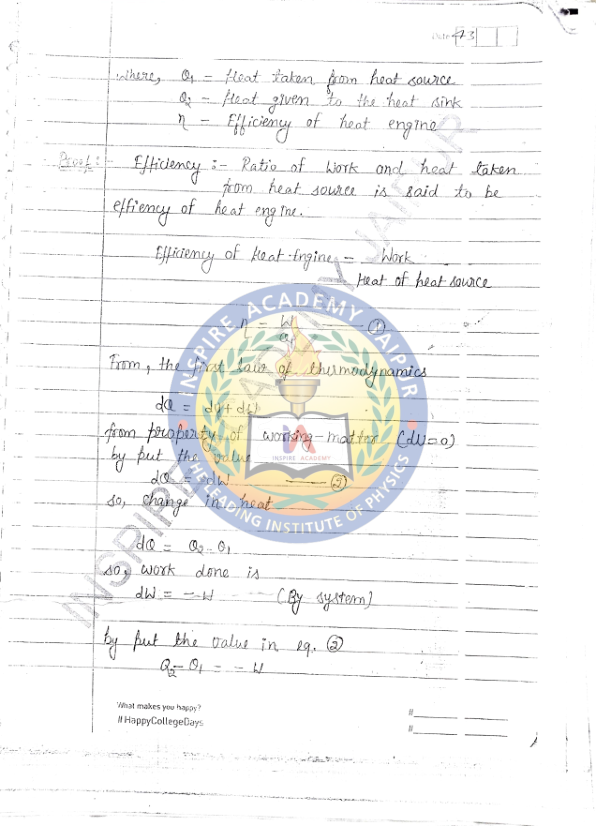 Date 43
where, Q1 = Heat taken from heat source
Q2 = Heat given to the heat sink
η = Efficiency of heat engine
Proof:- Efficiency :- Ratio of work and heat taken
from heat source is said to be
effiency of heat engine.
Efficiency of Heat Engine = Work
Heat of heat source
η = W ——— ①
Q1
From, the first law of thermodynamics
dQ = dU + dW
from property of working-matter (dU=0)
by put the value
dQ = dW ——— ②
so, change in heat
dQ = Q2 - Q1
so, work done is
dW = -W (By system)
by put the value in eq. ②
Q2 - Q1 = - W
What makes you happy?
#HappyCollegeDays
#
#
INSPIRE ACADEMY JAIPUR
THE LEADING INSTITUTE OF PHYSICS
IA
INSPIRE ACADEMY
INSPIRE ACADEMY JAIPUR